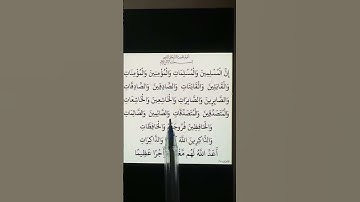 إِنَّ الْمُسْلِمِينَ وَالْمُسْلِمَاتِ وَالْمُؤْمِنِينَ وَالْمُؤْمِنَاتِ
وَالْقَانِتِينَ وَالْقَانِتَاتِ وَالصَّادِقِينَ وَالصَّادِقَاتِ
وَالصَّابِرِينَ وَالصَّابِرَاتِ وَالْخَاشِعِينَ وَالْخَاشِعَاتِ
وَالْمُتَصَدِّقِينَ وَالْمُتَصَدِّقَاتِ وَالصَّائِمِينَ وَالصَّائِمَاتِ
وَالْحَافِظِينَ فُرُوجَهُمْ وَالْحَافِظَاتِ
وَالذَّاكِرِينَ اللَّهَ وَالذَّاكِرَاتِ
أَعَدَّ اللَّهُ لَهُم وَأَجْرًا عَظِيمًا